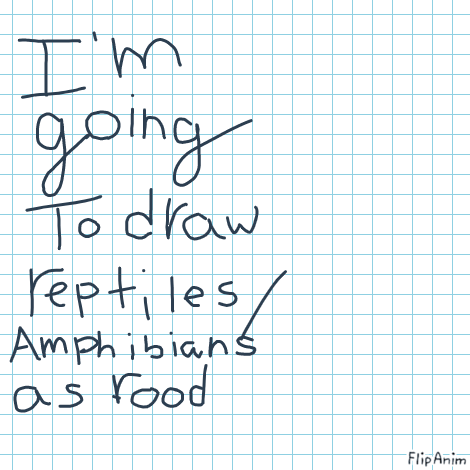 I'm
going
To draw
reptiles/
Amphibians
as rood
FlipAnim